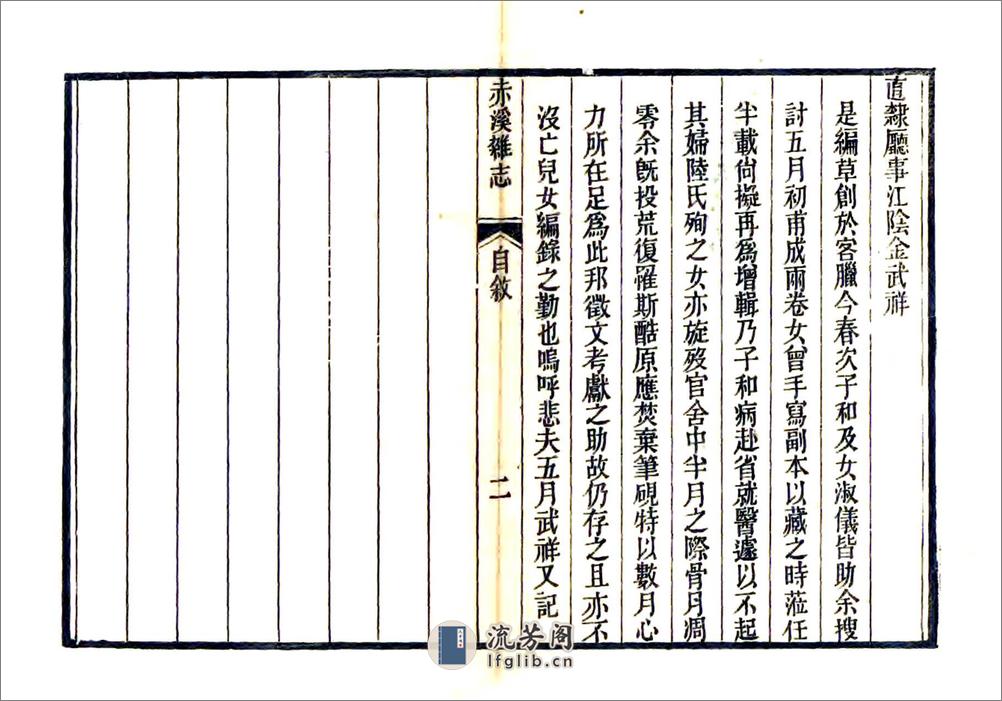 直隸廳事江陰金武祥
是編草創於客臘今春次子和及女淑儀皆助余搜
討五月初甫成兩卷女曾手寫副本以藏之時蒞任
半載尙擬再為增輯乃子和病赴省就醫遽以不起
其婦陸氏殉之女亦旋歿官舍中半月之際骨月凋
零余旣投荒復罹斯酷原應焚棄筆硯特以數月心
力所在足爲此邦徵文考獻之助故仍存之且亦不
沒亡兒女編錄之勤也嗚呼悲夫五月武祥又記
赤溪雜志
自敘
二
流芳阁
lfglib.cn